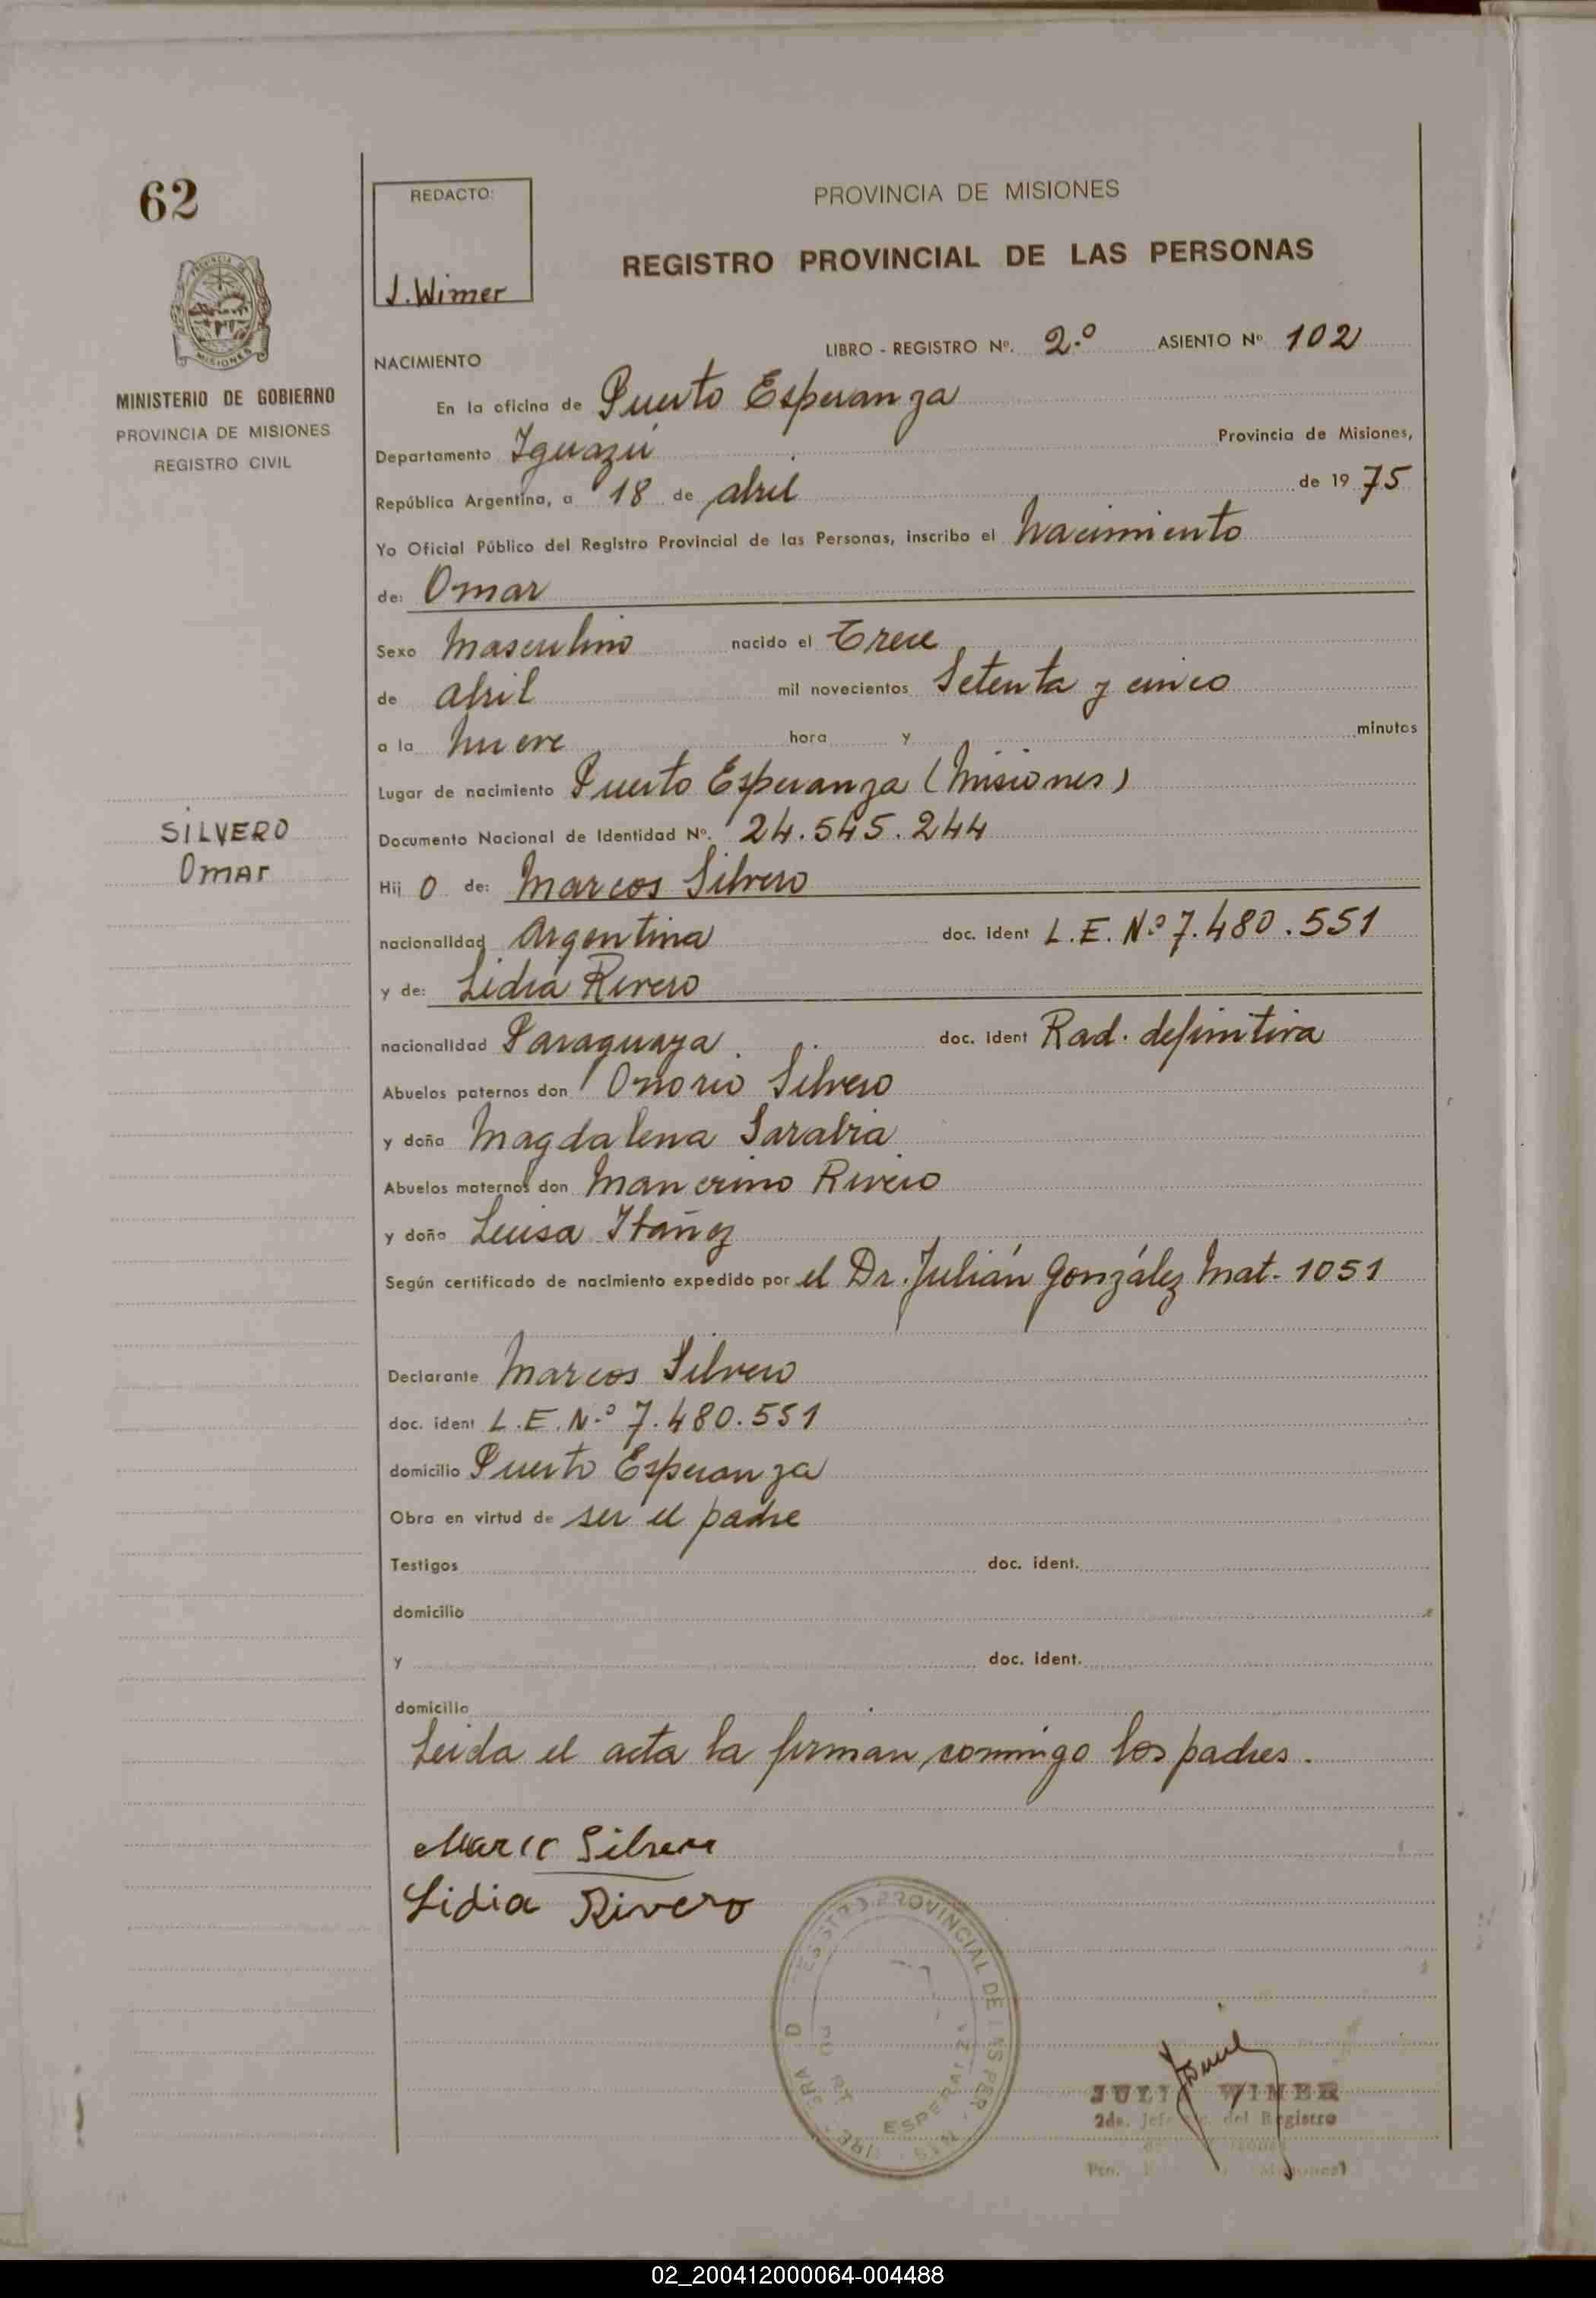 62
REDACTO:
J. Wimer
PROVINCIA DE MISIONES
REGISTRO PROVINCIAL DE LAS PERSONAS
MISIONES
MINISTERIO DE GOBIERNO
PROVINCIA DE MISIONES
REGISTRO CIVIL
NACIMIENTO LIBRO - REGISTRO Nº. 2.º ASIENTO Nº 102
En la oficina de Puerto Esperanza
Departamento Iguazú Provincia de Misiones,
República Argentina, a 18 de abril de 19 75
Yo Oficial Público del Registro Provincial de las Personas, inscribo el Nacimiento
de: Omar
Sexo Masculino nacido el Trece
de abril mil novecientos Setenta y cinco
a la nueve hora y minutos
Lugar de nacimiento Puerto Esperanza (Misiones)
SILVERO
Omar
Documento Nacional de Identidad Nº. 24.545.244
Hij o de: Marcos Silvero
nacionalidad Argentina doc. ident L.E. N.º 7.480.551
y de: Lidia Rivero
nacionalidad Paraguaya doc. ident Rad. definitiva
Abuelos paternos don Onorio Silvero
y doña Magdalena Sarabia
Abuelos maternos don Rivero
y doña Luisa
Según certificado de nacimiento expedido por el Dr. Julián González Mat. 1051
Declarante Marcos Silvero
doc. ident L.E. N.º 7.480.551
domicilio Puerto Esperanza
Obra en virtud de ser el padre
Testigos doc. ident.
domicilio
y doc. ident.
domicilio
Leida el acta la firman conmigo los padres.
Silvero
Lidia Rivero
PROVINCIAL DE LAS PER
ESPERANZA
JULIO WIMER
2da. Jefe del Registro
02_200412000064-004488